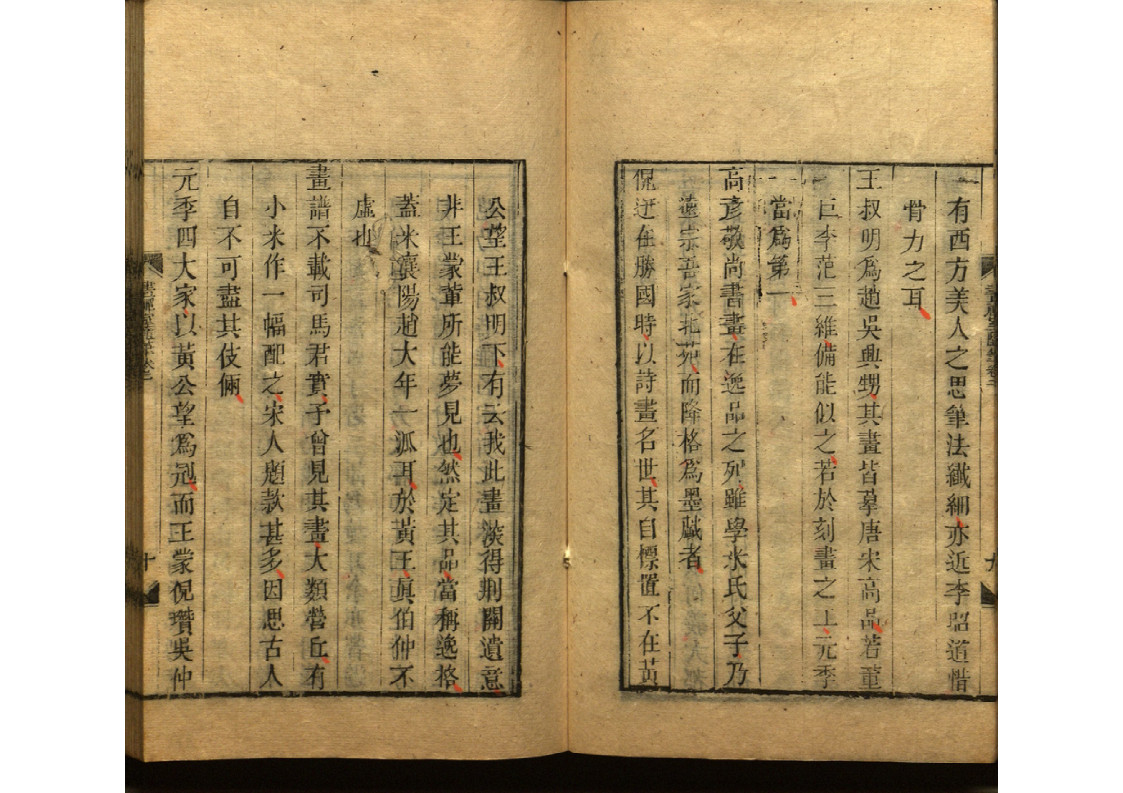 有西方美人之思筆法纖細亦近李昭道惜
骨力乏耳
王叔明為趙吳興甥其畫皆摹唐宋高品若董
巨李范三維備能似之若於刻畫之工元季
當為第一
高彥敬尚書畫在逸品之列雖學米氏父子乃
遠宗吾家北苑而降格為墨戲者
倪迂在勝國時以詩畫名世其自標置不在黃
公望王叔明下有云我此畫深得荆關遺意
非王蒙軰所能夢見也然定其品當稱逸格
蓋米襄陽趙大年一派耳於黃王眞伯仲不
虛也
畫譜不載司馬君實予曾見其畫大類營丘有
小米作一幅配之宋人題款甚多因思古人
自不可盡其伎倆
元季四大家以黃公望為冠而王蒙倪瓚吳仲
十